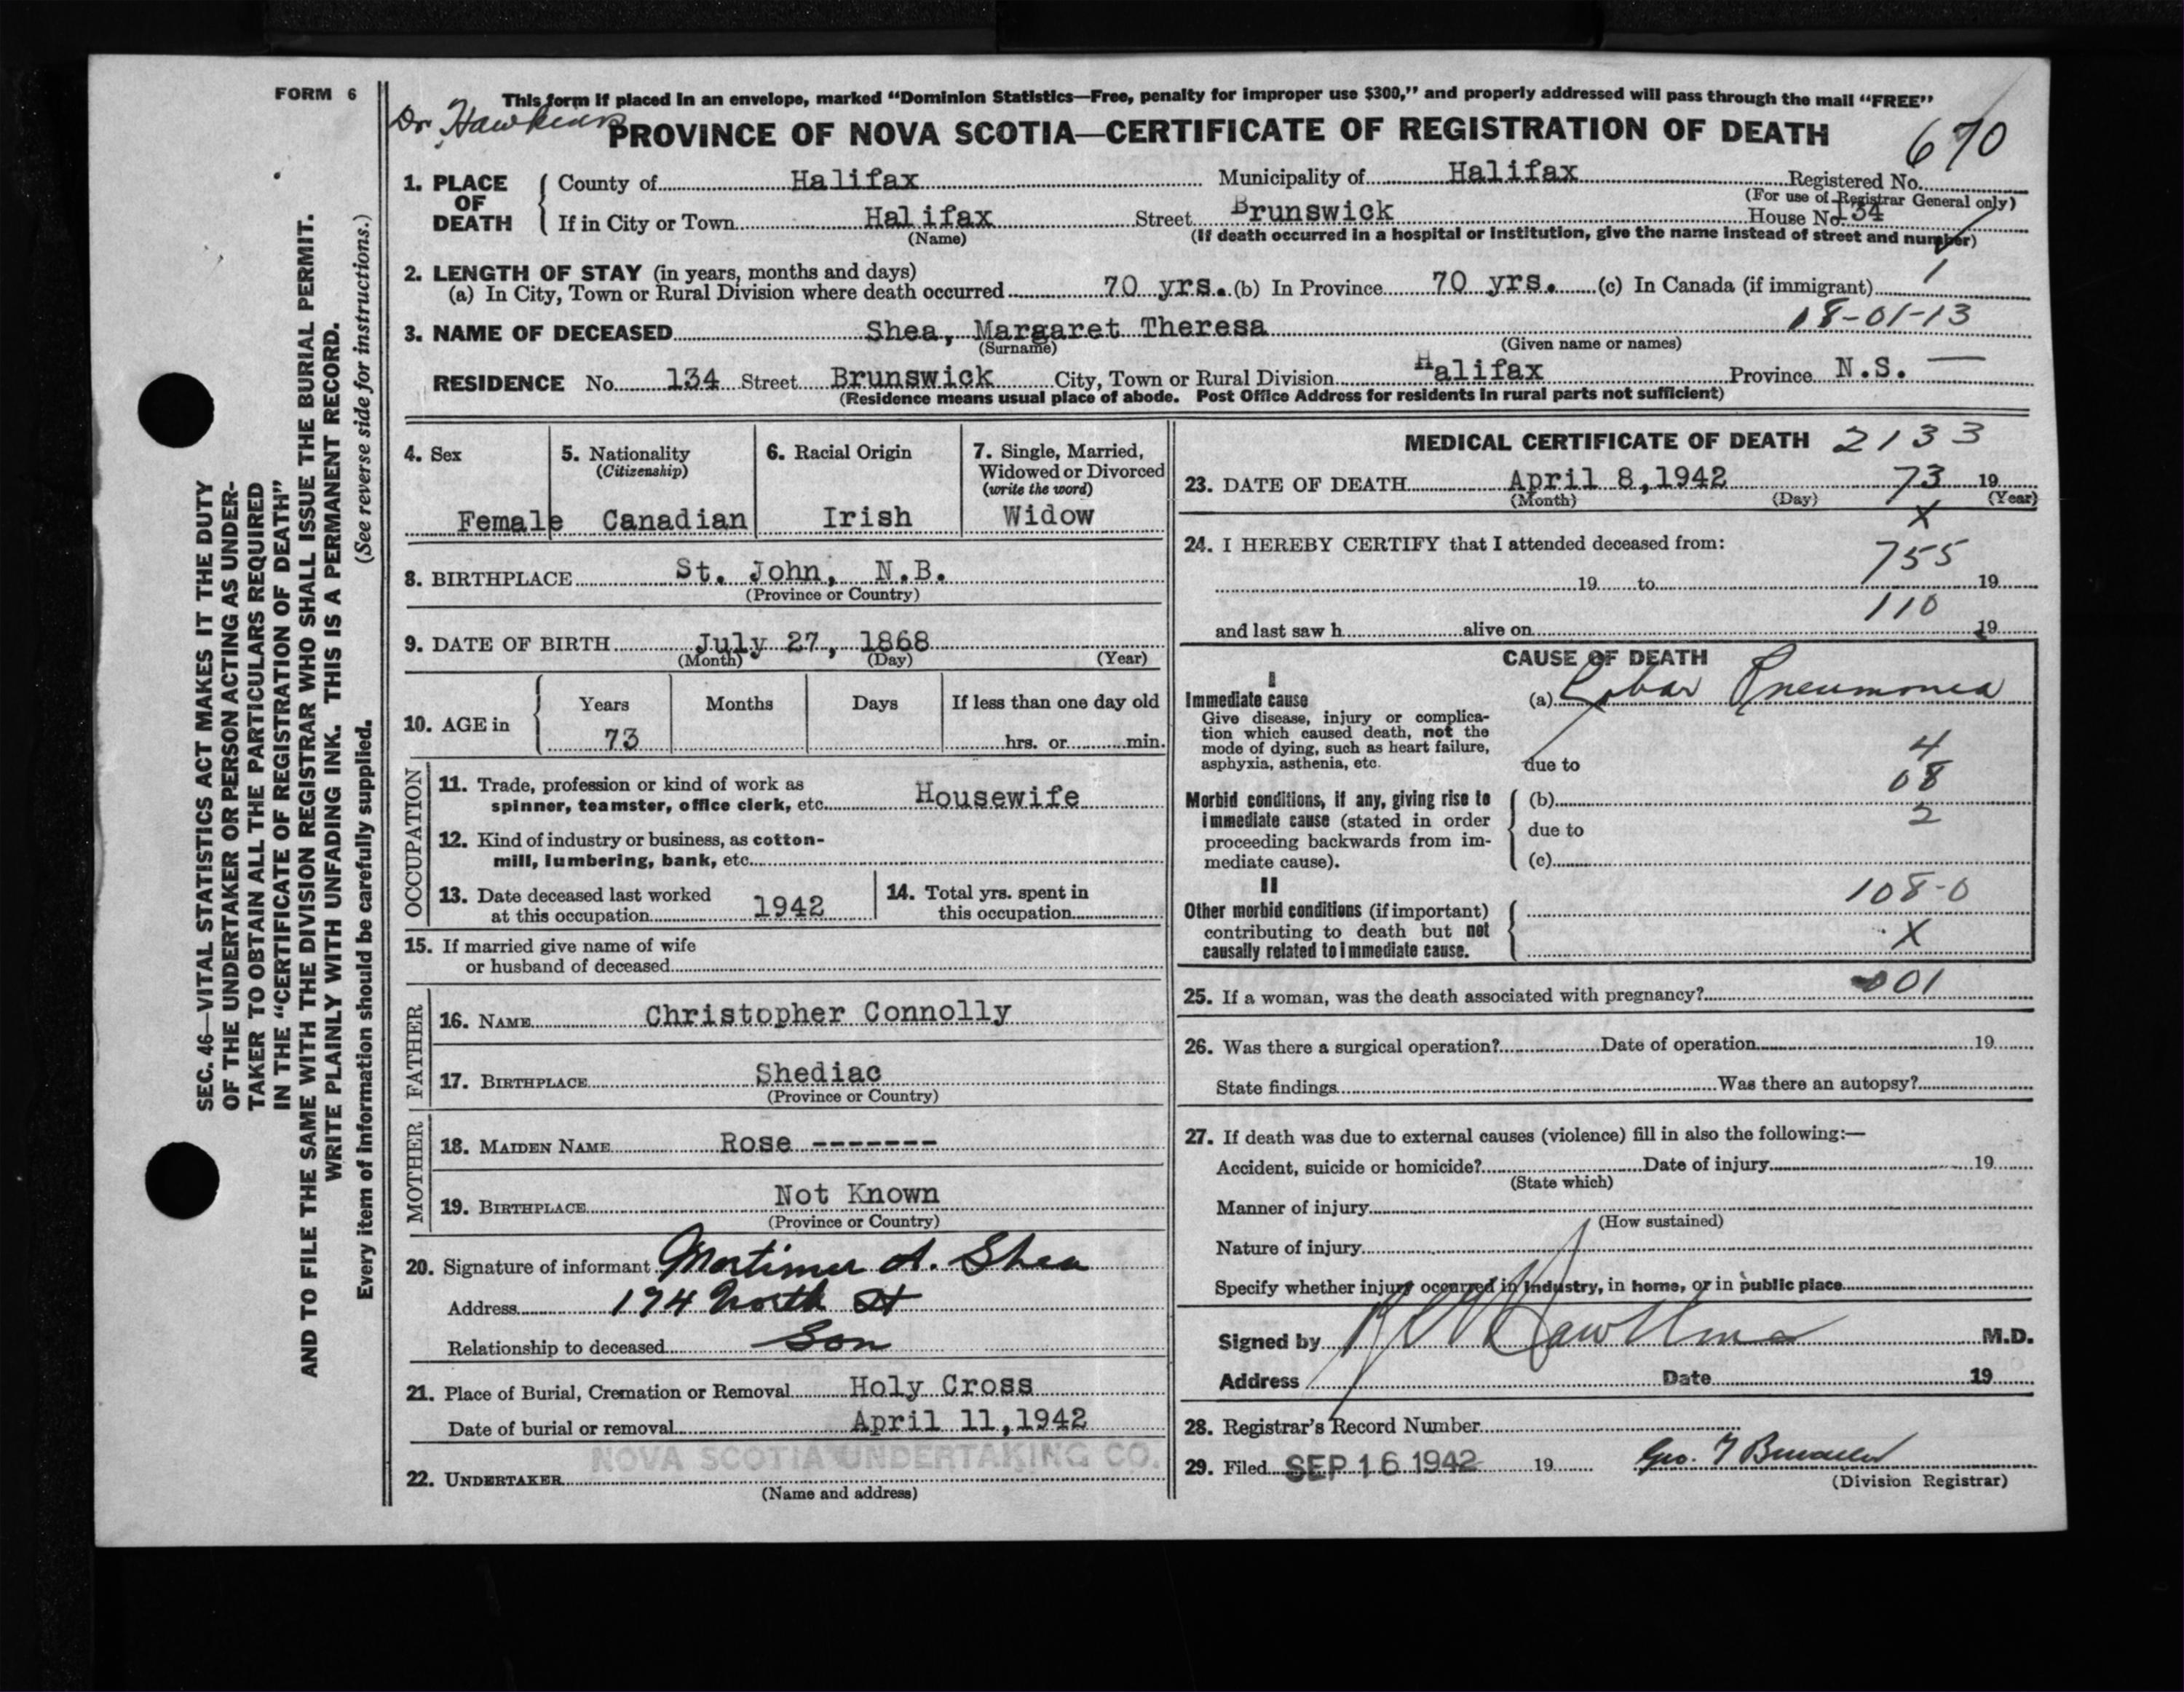 FORM 6
This form if placed in an envelope, marked “Dominion Statistics—Free, penalty for improper use $300,” and properly addressed will pass through the mail “FREE”
Dr. Hawkins
PROVINCE OF NOVA SCOTIA—CERTIFICATE OF REGISTRATION OF DEATH
670
1. PLACE OF DEATH
County of Halifax Municipality of Halifax Registered No.
(For use of Registrar General only)
If in City or Town Halifax Street Brunswick House No. 134
(Name) (If death occurred in a hospital or institution, give the name instead of street and number)
2. LENGTH OF STAY (in years, months and days)
(a) In City, Town or Rural Division where death occurred 70 yrs. (b) In Province 70 yrs. (c) In Canada (if immigrant) 1
18-01-13
3. NAME OF DECEASED Shea, Margaret Theresa
(Surname) (Given name or names)
RESIDENCE No. 134 Street Brunswick City, Town or Rural Division Halifax Province N.S. —
(Residence means usual place of abode. Post Office Address for residents in rural parts not sufficient)
4. Sex
Female
5. Nationality
(Citizenship)
Canadian
6. Racial Origin
Irish
7. Single, Married,
Widowed or Divorced
(write the word)
Widow
8. BIRTHPLACE St. John, N.B.
(Province or Country)
9. DATE OF BIRTH July 27, 1868
(Month) (Day) (Year)
10. AGE in
Years Months Days If less than one day old
73 hrs. or min.
OCCUPATION
11. Trade, profession or kind of work as
spinner, teamster, office clerk, etc. Housewife
12. Kind of industry or business, as cotton-
mill, lumbering, bank, etc.
13. Date deceased last worked
at this occupation 1942
14. Total yrs. spent in
this occupation
15. If married give name of wife
or husband of deceased
FATHER
16. NAME Christopher Connolly
17. BIRTHPLACE Shediac
(Province or Country)
MOTHER
18. MAIDEN NAME Rose -------
19. BIRTHPLACE Not Known
(Province or Country)
20. Signature of informant Mortimer A. Shea
Address 174 North St
Relationship to deceased Son
21. Place of Burial, Cremation or Removal Holy Cross
Date of burial or removal April 11, 1942
NOVA SCOTIA UNDERTAKING CO.
22. UNDERTAKER
(Name and address)
MEDICAL CERTIFICATE OF DEATH 2133
23. DATE OF DEATH April 8, 1942 73 19
(Month) (Day) (Year)
X
24. I HEREBY CERTIFY that I attended deceased from:
755
19 to 19
110
and last saw h alive on 19
CAUSE OF DEATH
I
Immediate cause (a) Lobar Pneumonia
Give disease, injury or complica-
tion which caused death, not the
mode of dying, such as heart failure,
asphyxia, asthenia, etc.
4
due to
08
Morbid conditions, if any, giving rise to
immediate cause (stated in order
proceeding backwards from im-
mediate cause).
(b)
2
due to
(c)
II
108-0
Other morbid conditions (if important)
contributing to death but not
causally related to immediate cause.
X
25. If a woman, was the death associated with pregnancy? 001
26. Was there a surgical operation? Date of operation 19
State findings Was there an autopsy?
27. If death was due to external causes (violence) fill in also the following:—
Accident, suicide or homicide? Date of injury 19
(State which)
Manner of injury
(How sustained)
Nature of injury
Specify whether injury occurred in industry, in home, or in public place
Signed by Hawkins M.D.
Address Date 19
28. Registrar's Record Number
29. Filed SEP 16 1942 19 Geo.
(Division Registrar)
SEC. 46—VITAL STATISTICS ACT MAKES IT THE DUTY
OF THE UNDERTAKER OR PERSON ACTING AS UNDER-
TAKER TO OBTAIN ALL THE PARTICULARS REQUIRED
IN THE “CERTIFICATE OF REGISTRATION OF DEATH”
AND TO FILE THE SAME WITH THE DIVISION REGISTRAR WHO SHALL ISSUE THE BURIAL PERMIT.
WRITE PLAINLY WITH UNFADING INK. THIS IS A PERMANENT RECORD.
Every item of information should be carefully supplied. (See reverse side for instructions.)